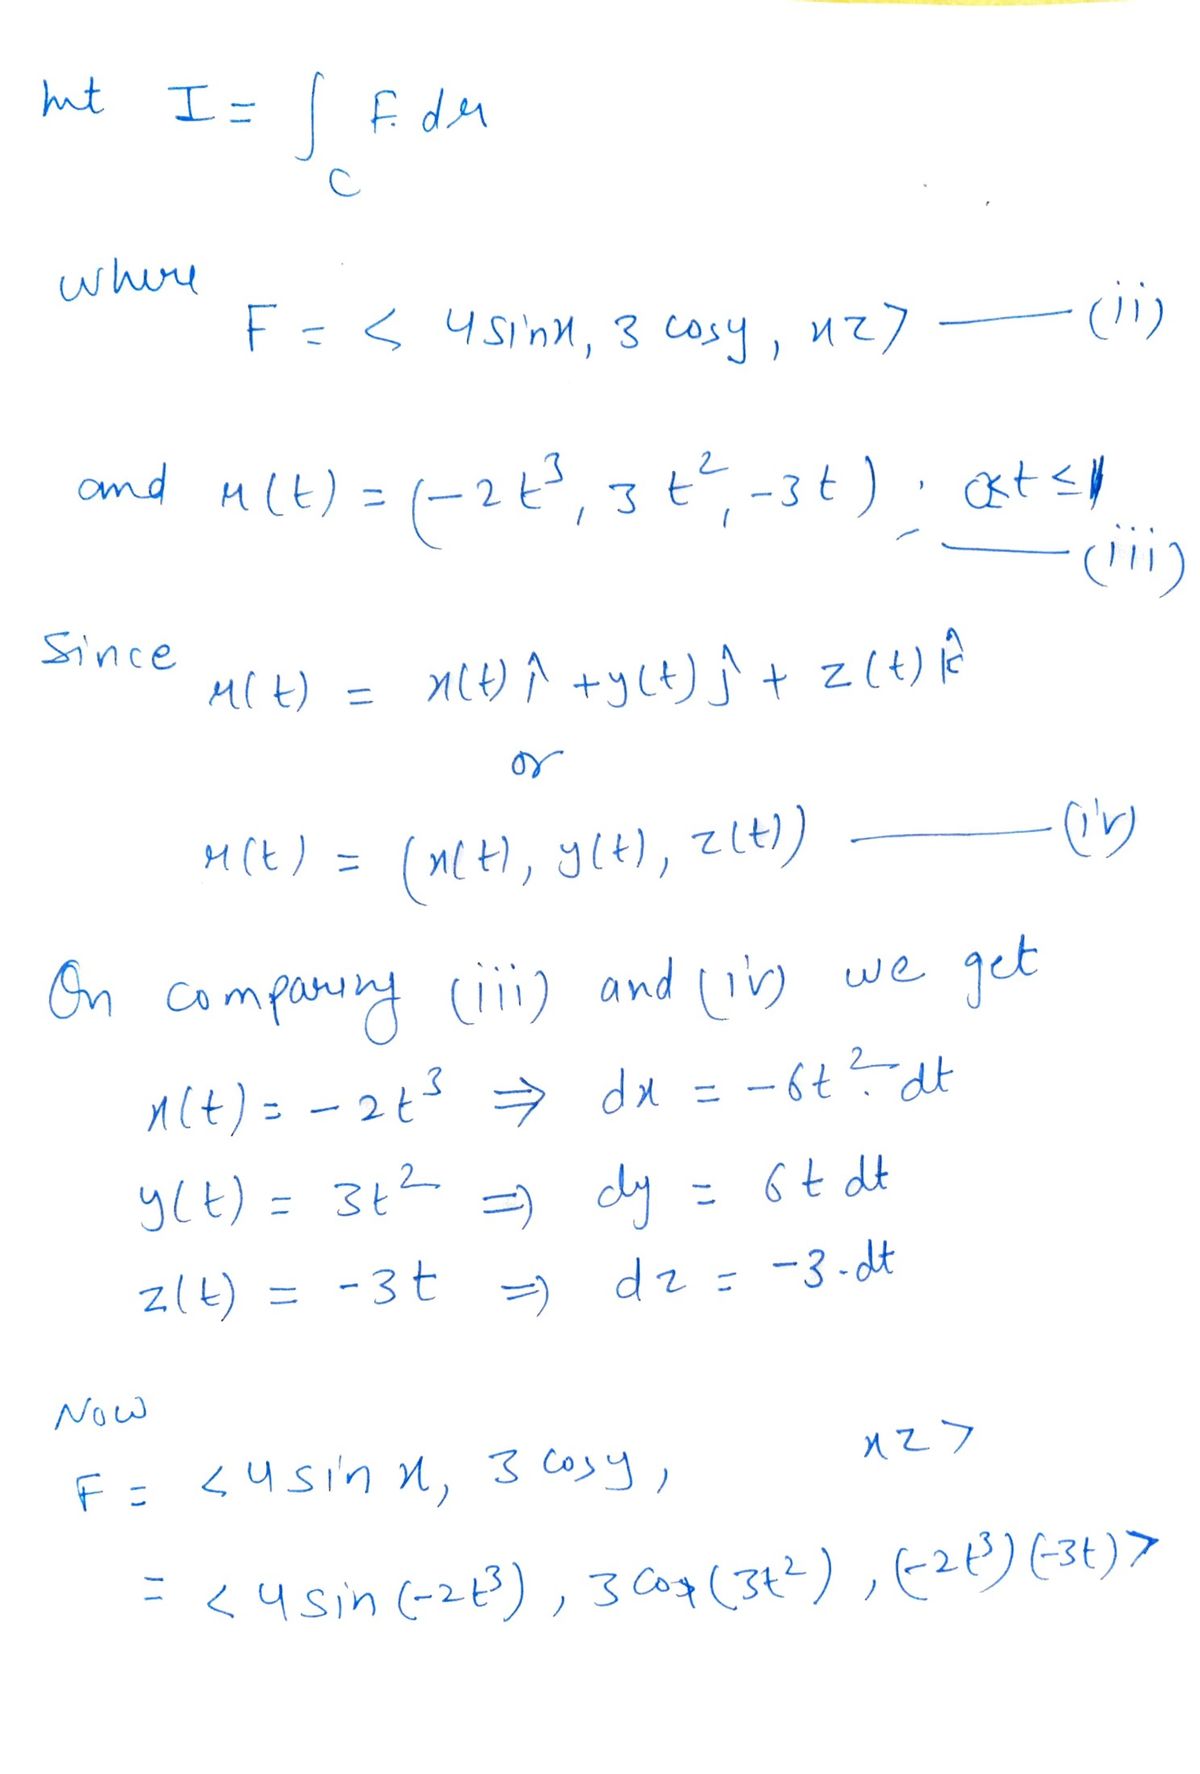 let I = ∫_C F. dr
where
F = < 4 sinx, 3 cosy, xz> —— (ii)
and r(t) = (-2t³, 3t², -3t) ; 0≤t≤1
—— (iii)
Since
r(t) = x(t) î + y(t) ĵ + z(t) k̂
or
r(t) = (x(t), y(t), z(t)) —— (iv)
On comparing (iii) and (iv) we get
x(t) = -2t³ ⇒ dx = -6t². dt
y(t) = 3t² ⇒ dy = 6t dt
z(t) = -3t ⇒ dz = -3.dt
Now
F = <4 sin x, 3 cosy, xz>
= <4 sin (-2t³), 3 cos(3t²), (-2t³)(-3t)>